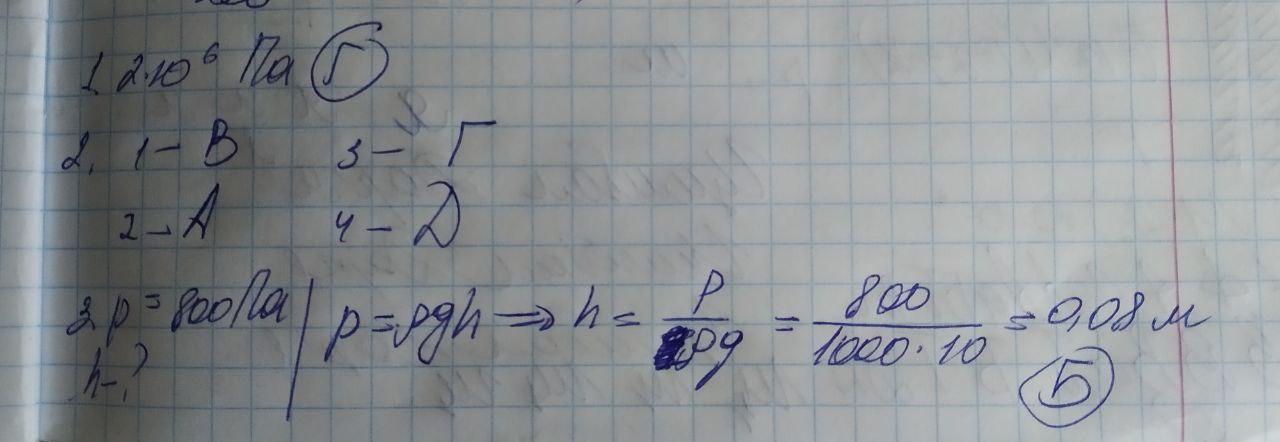 1. 2·10⁶ Па Г
2. 1 – В 3 – Г
2 – А 4 – Д
3. p = 800 Па | p = ρgh ⇒ h = p/ρg = 800/1000·10 = 0,08 м
h – ? Б